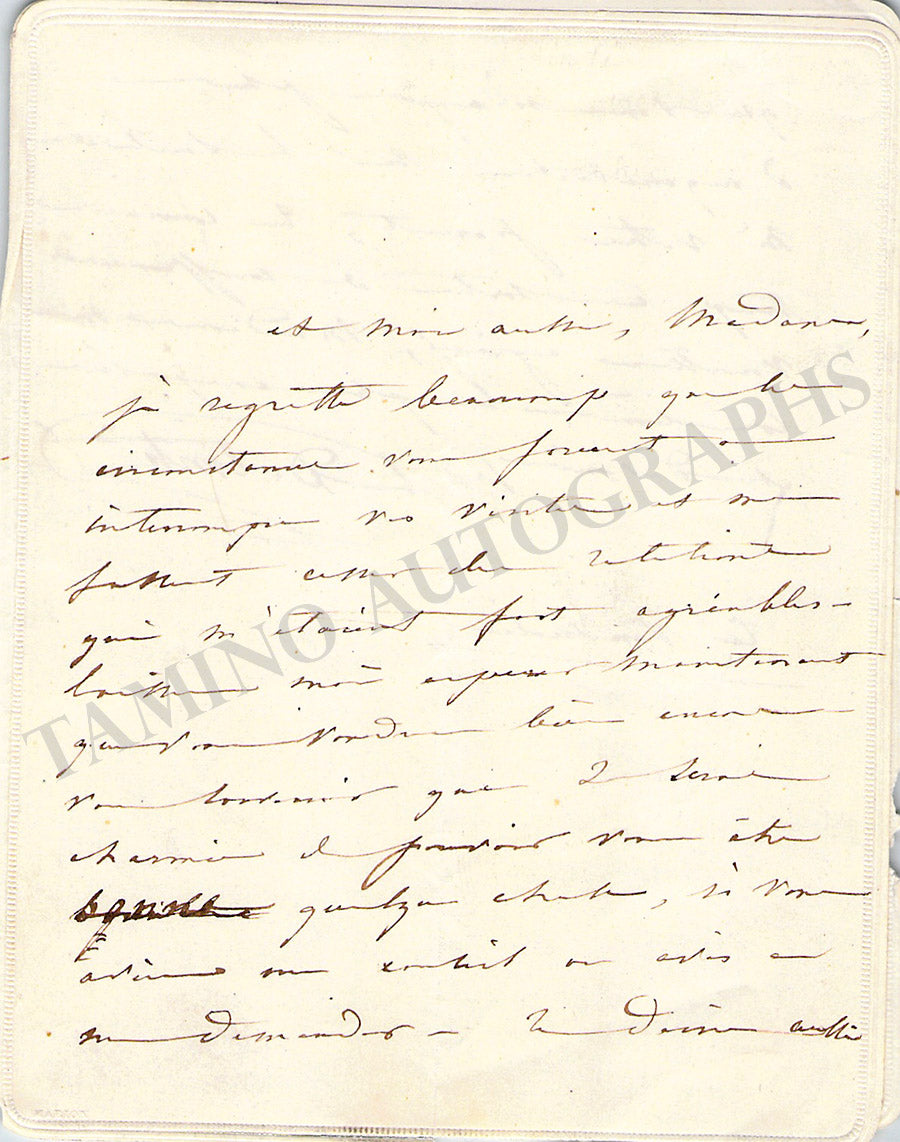 et moi aussi, Madame,
je regrette beaucoup que les
circonstances vous forcent à
interrompre vos visites et me
fassent cesser des relations
qui m'étaient fort agréables -
laissez moi espérer maintenant
que vous voudrez bien encore
vous souvenir que je serai
charmée de pouvoir vous être
quelque chose, si vous
aviez un conseil ou avis à
me demander - Je désire aussi
TAMINO AUTOGRAPHS
MARION